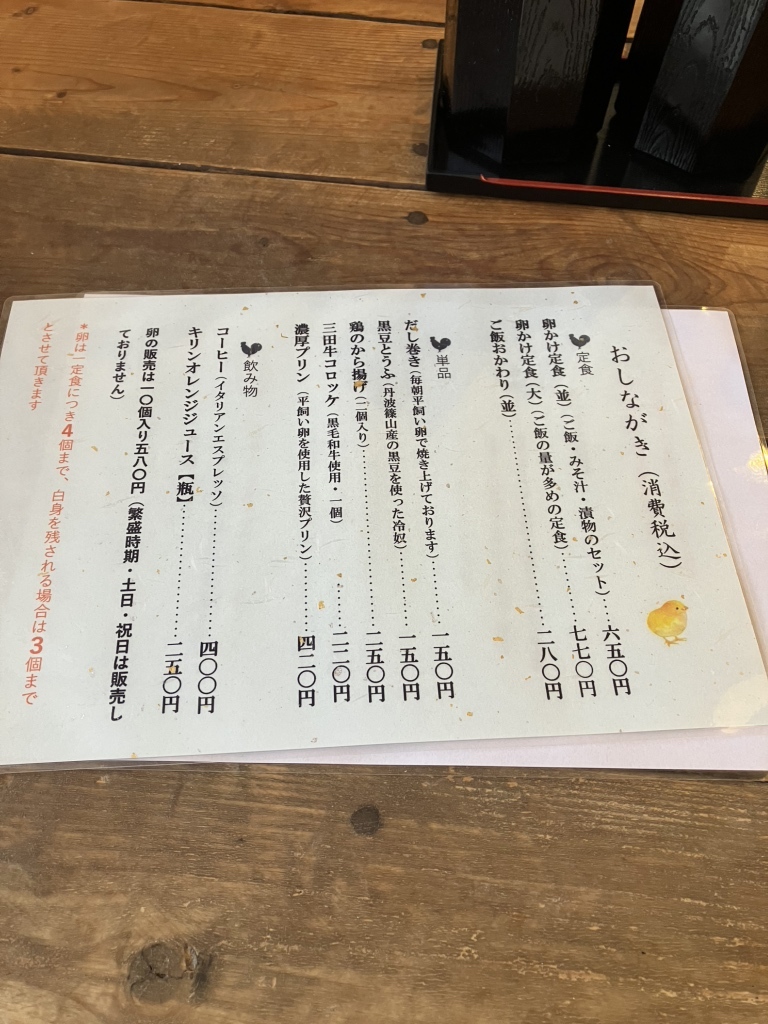 おしながき（消費税込）
定食
卵かけ定食（並）（ご飯・みそ汁・漬物のセット）…… 六五〇円
卵かけ定食（大）（ご飯の量が多めの定食）…… 七七〇円
ご飯おかわり（並）…… 二八〇円
単品
だし巻き（毎朝平飼い卵で焼き上げております）…… 一五〇円
黒豆とうふ（丹波篠山産の黒豆を使った冷奴）…… 一五〇円
鶏のから揚げ（二個入り）…… 二五〇円
三田牛コロッケ（黒毛和牛使用・一個）…… 二二〇円
濃厚プリン（平飼い卵を使用した贅沢プリン）…… 四二〇円
飲み物
コーヒー（イタリアンエスプレッソ）…… 四〇〇円
キリンオレンジジュース【瓶】…… 二五〇円
卵の販売は一〇個入り五八〇円（繁盛時期・土日・祝日は販売し
ておりません）
*卵は一定食につき4個まで、白身を残される場合は3個まで
とさせて頂きます